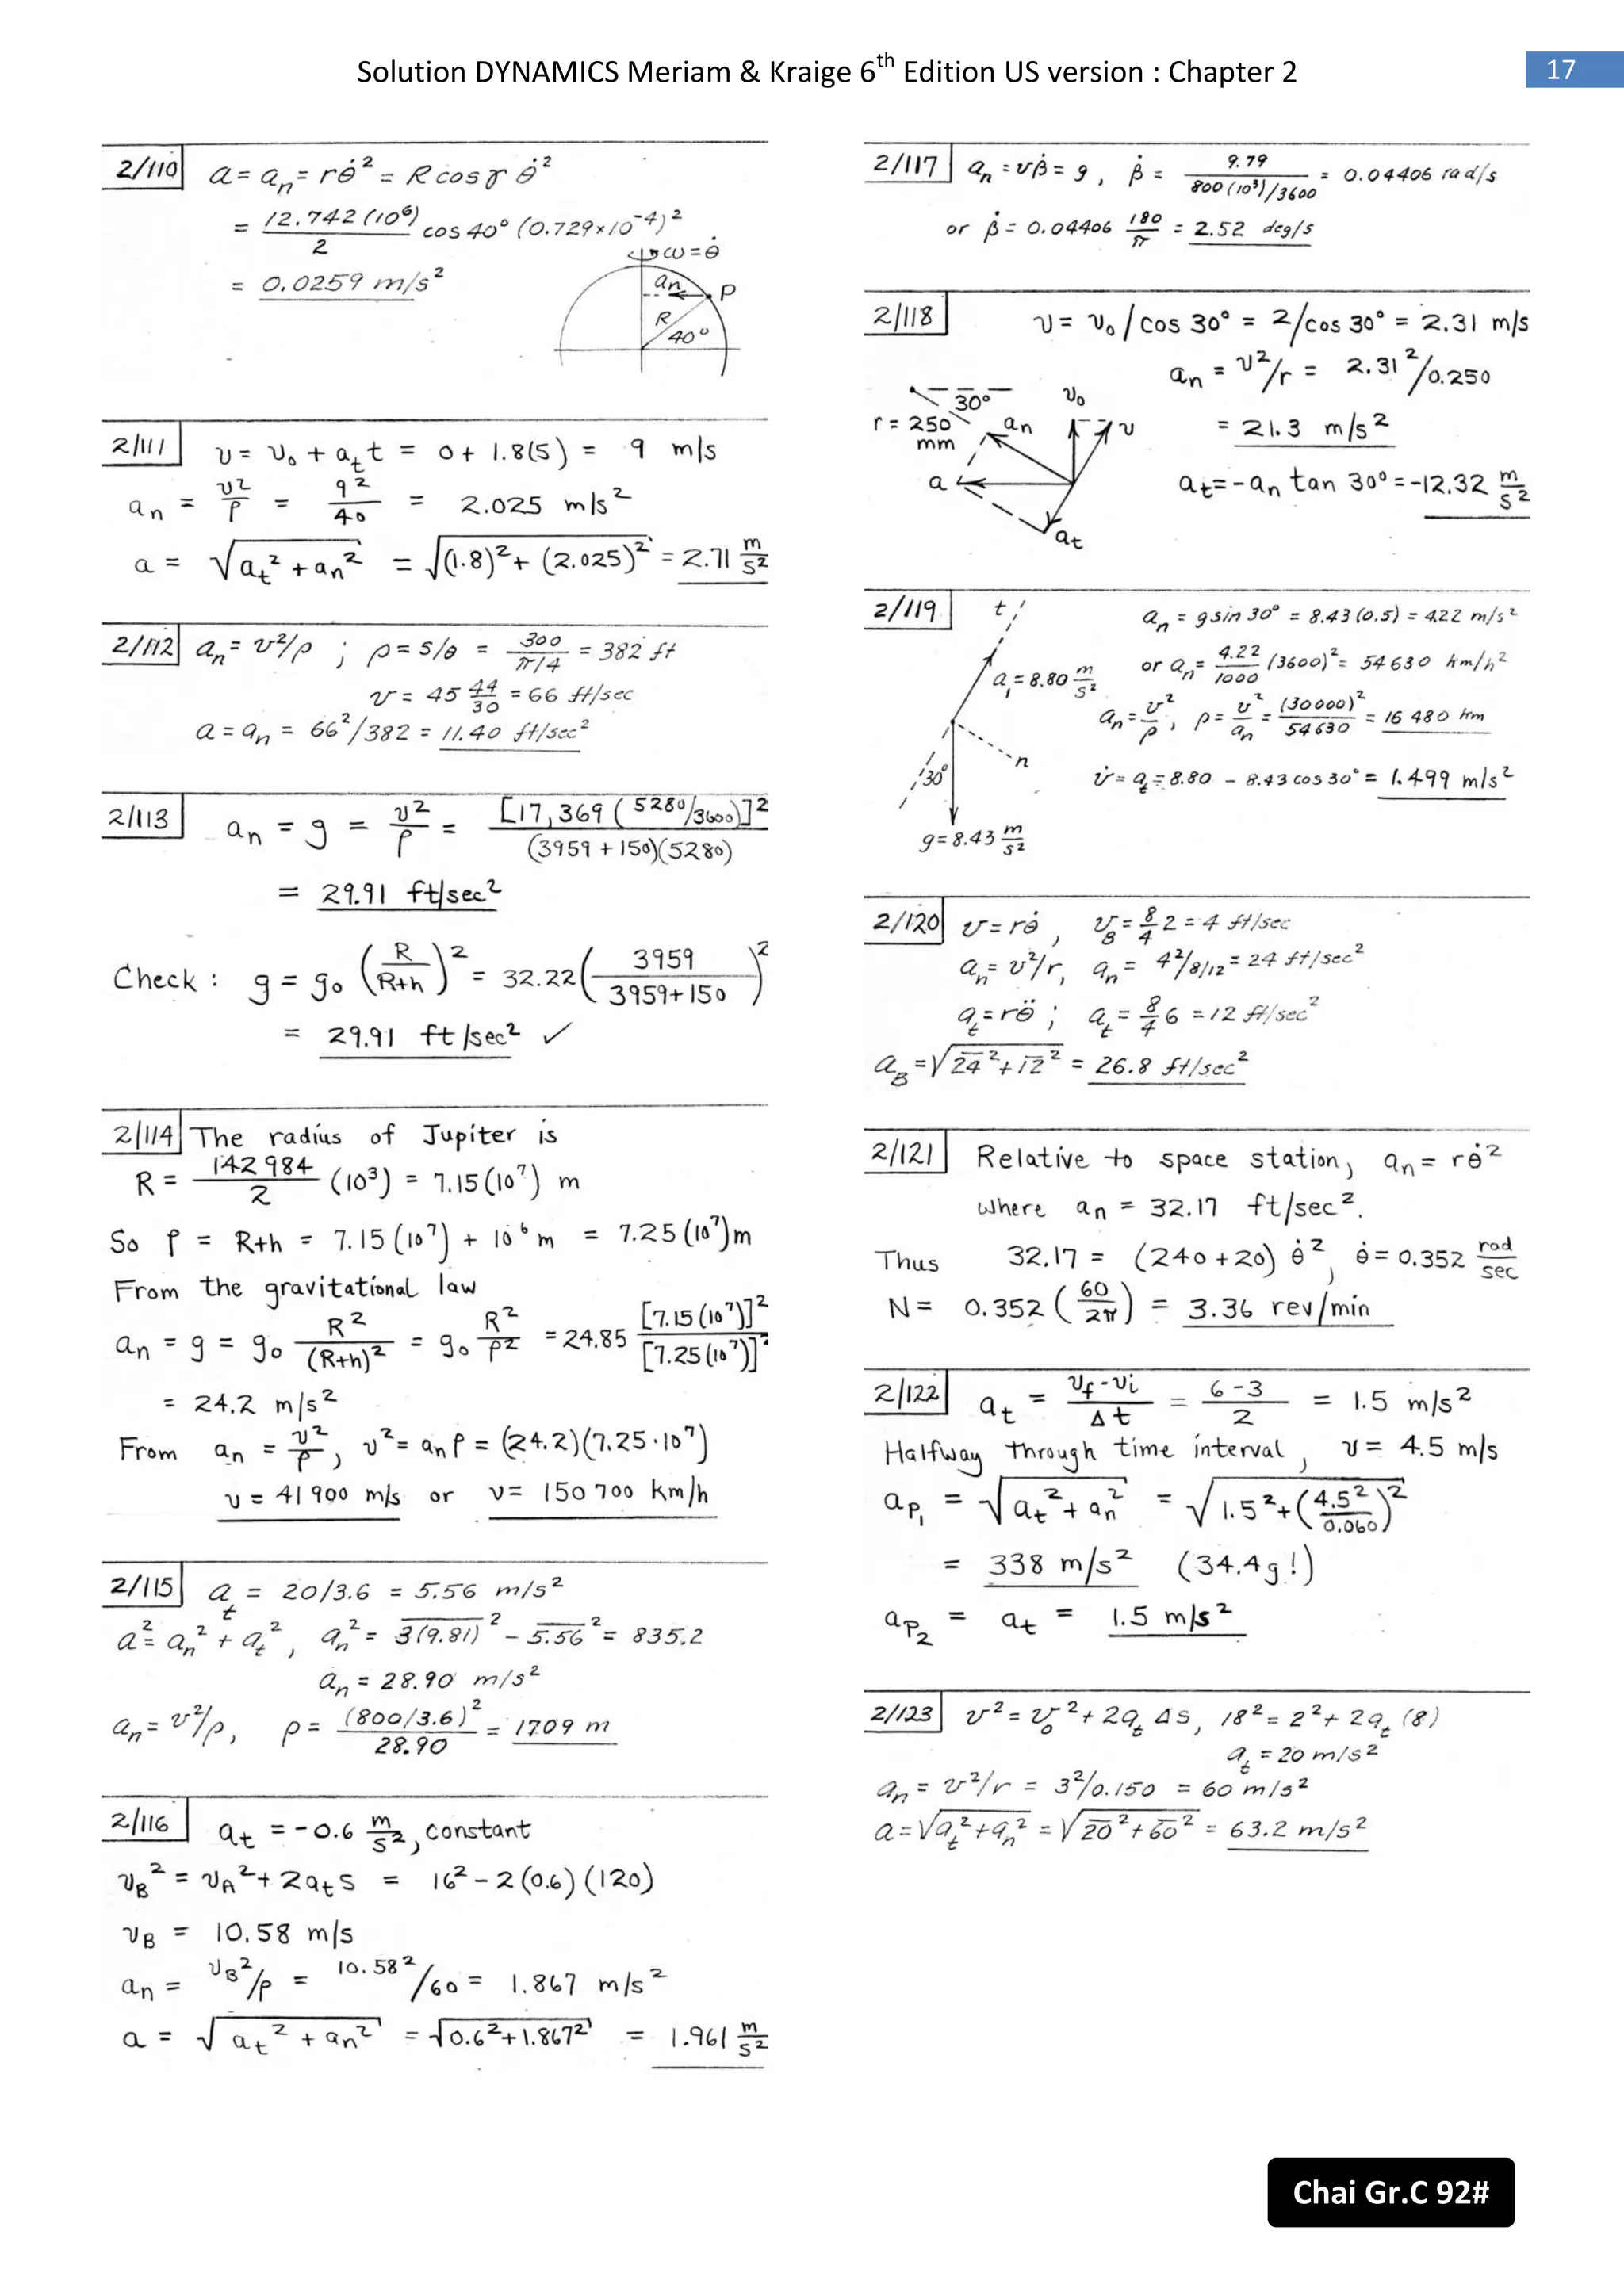 Solution DYNAMICS Meriam & Kraige 6th Edition US version : Chapter 2
17
2/110 a = a_n = rθ̇² = R cos γ θ̇²
= 12.742(10⁶)/2 cos 40° (0.729×10⁻⁴)²
= 0.0259 m/s²
ω = θ̇
a_n P
R
40°
2/111 v = v₀ + a_t t = 0 + 1.8(5) = 9 m/s
a_n = v²/ρ = 9²/40 = 2.025 m/s²
a = √(a_t² + a_n²) = √((1.8)² + (2.025)²) = 2.71 m/s²
2/112 a_n = v²/ρ ; ρ = s/θ = 300/(π/4) = 382 ft
v = 45 44/30 = 66 ft/sec
a = a_n = 66²/382 = 11.40 ft/sec²
2/113 a_n = g = v²/ρ = [17,369 (5280/3600)]² / (3959 + 150)(5280)
= 29.91 ft/sec²
Check : g = g₀ (R/(R+h))² = 32.22 (3959/(3959+150))²
= 29.91 ft/sec² ✓
2/114 The radius of Jupiter is
R = 142 984/2 (10³) = 7.15(10⁷) m
So ρ = R+h = 7.15(10⁷) + 10⁶ m = 7.25(10⁷) m
From the gravitational law
a_n = g = g₀ R²/(R+h)² = g₀ R²/ρ² = 24.85 [7.15(10⁷)]²/[7.25(10⁷)]²
= 24.2 m/s²
From a_n = v²/ρ, v² = a_n ρ = (24.2)(7.25·10⁷)
v = 41 900 m/s or v = 150 700 km/h
2/115 a_t = 20/3.6 = 5.56 m/s²
a² = a_n² + a_t², a_n² = 3(9.81)² − 5.56² = 835.2
a_n = 28.90 m/s²
a_n = v²/ρ, ρ = (800/3.6)²/28.90 = 1709 m
2/116 a_t = −0.6 m/s², constant
v_B² = v_A² + 2a_t s = 16² − 2(0.6)(120)
v_B = 10.58 m/s
a_n = v_B²/ρ = 10.58²/60 = 1.867 m/s²
a = √(a_t² + a_n²) = √(0.6² + 1.867²) = 1.961 m/s²
2/117 a_n = vβ̇ = g, β̇ = 9.79/(800(10³)/3600) = 0.04406 rad/s
or β̇ = 0.04406 180/π = 2.52 deg/s
2/118 v = v₀/cos 30° = 2/cos 30° = 2.31 m/s
a_n = v²/r = 2.31²/0.250
= 21.3 m/s²
a_t = −a_n tan 30° = −12.32 m/s²
30° v₀
r = 250 mm a_n v
a
a_t
2/119 t a_n = g sin 30° = 8.43(0.5) = 4.22 m/s²
or a_n = 4.22/1000 (3600)² = 54 630 km/h²
a₁ = 8.80 m/s²
a_n = v²/ρ, ρ = v²/a_n = (30 000)²/54 630 = 16 480 km
n
30° v̇ = a_t = 8.80 − 8.43 cos 30° = 1.499 m/s²
g = 8.43 m/s²
2/120 v = rθ̇, v_B = 8/4 2 = 4 ft/sec
a_n = v²/r, a_n = 4²/8/12 = 24 ft/sec²
a_t = rθ̈ ; a_t = 8/4 6 = 12 ft/sec²
a_B = √(24² + 12²) = 26.8 ft/sec²
2/121 Relative to space station, a_n = rθ̇²
where a_n = 32.17 ft/sec².
Thus 32.17 = (240 + 20) θ̇², θ̇ = 0.352 rad/sec
N = 0.352 (60/2π) = 3.36 rev/min
2/122 a_t = (v_f − v_i)/Δt = (6 − 3)/2 = 1.5 m/s²
Halfway through time interval, v = 4.5 m/s
a_P₁ = √(a_t² + a_n²) = √(1.5² + (4.5²/0.060)²)
= 338 m/s² (34.4g!)
a_P₂ = a_t = 1.5 m/s²
2/123 v² = v₀² + 2a_t Δs, 18² = 2² + 2a_t (8)
a_t = 20 m/s²
a_n = v²/r = 3²/0.150 = 60 m/s²
a = √(a_t² + a_n²) = √(20² + 60²) = 63.2 m/s²
Chai Gr.C 92#